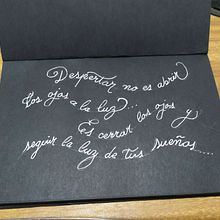 Despertar no es abrir
los ojos a la luz...
Es cerrar los ojos y
seguir la luz de tus sueños....